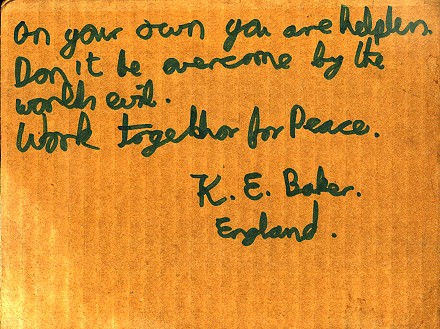 On your own you are helpless.
Don't be overcome by the
worlds evil.
Work together for Peace.
K. E. Baker.
England.